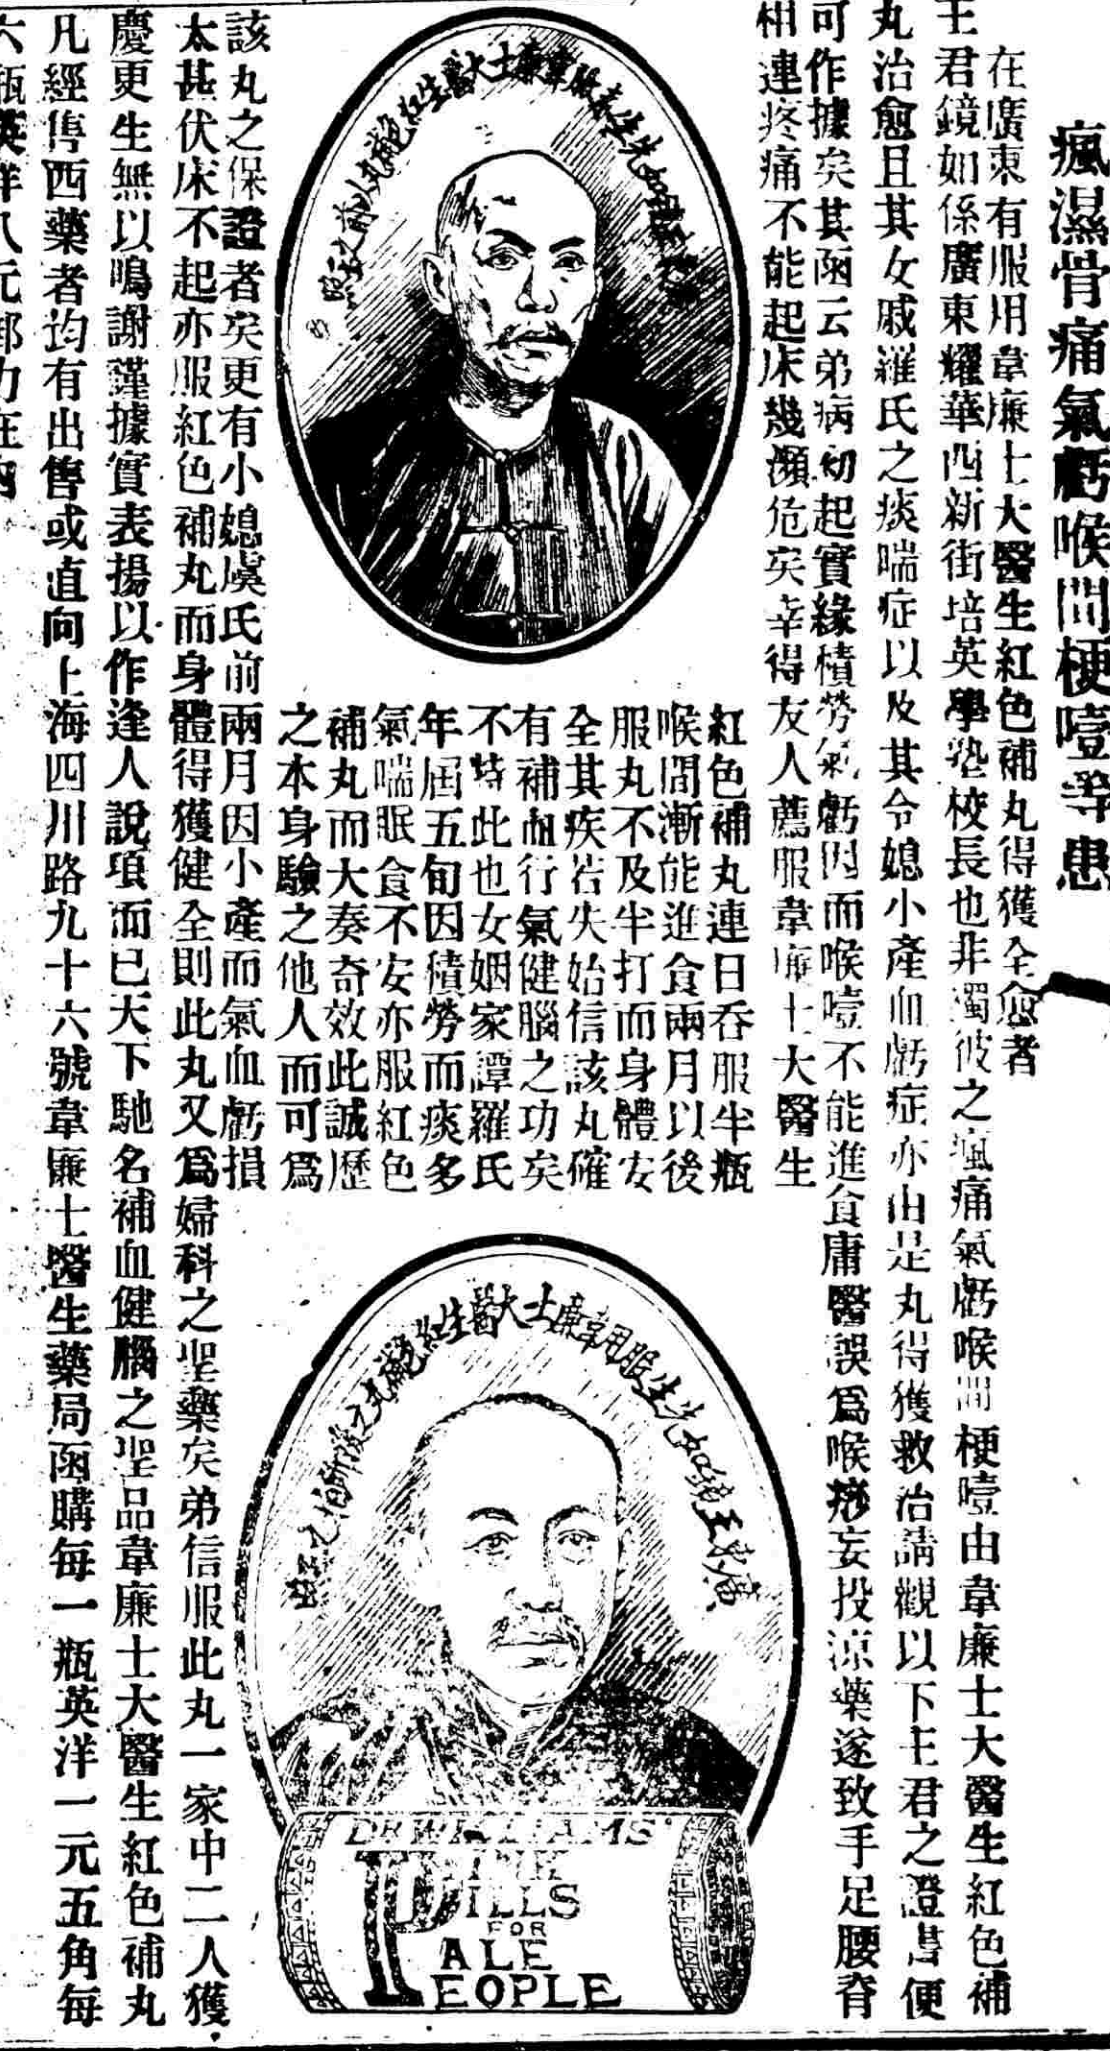 瘋濕骨痛氣虧喉間梗噎等患
在廣東有服用韋廉士大醫生紅色補丸得獲全愈者
王君鏡如係廣東耀華西新街培英學塾校長也非獨彼之瘋痛氣虧喉間梗噎由韋廉士大醫生紅色補
丸治愈且其女戚羅氏之痰喘症以及其令媳小產血虧症亦由是丸得獲救治請觀以下王君之證書便
可作據矣其函云弟病初起實緣積勞氣虧因而喉噎不能進食庸醫誤爲喉痧妄投涼藥遂致手足腰脊
相連疼痛不能起床幾瀕危矣幸得友人薦服韋廉士大醫生
紅色補丸連日吞服半瓶
喉間漸能進食兩月以後
服丸不及半打而身體安
全其疾若失始信該丸確
有補血行氣健腦之功矣
不特此也女姻家譚羅氏
年屆五旬因積勞而痰多
氣喘眠食不安亦服紅色
補丸而大奏奇效此誠歷
之本身驗之他人而可爲
該丸之保證者矣更有小媳虞氏前兩月因小產而氣血虧損
太甚伏床不起亦服紅色補丸而身體得獲健全則此丸又爲婦科之聖藥矣弟信服此丸一家中二人獲
慶更生無以鳴謝謹據實表揚以作逢人說項而已天下馳名補血健腦之聖品韋廉士大醫生紅色補丸
凡經售西藥者均有出售或直向上海四川路九十六號韋廉士醫生藥局函購每一瓶英洋一元五角每
六瓶英洋八元郵力在內
生先如鏡
服韋廉士大醫生紅色補丸以前之
廣東王鏡如先生服用韋廉士大醫生紅色補丸之後
DR. WILLIAMS'
PINK
PILLS
FOR
PALE
PEOPLE